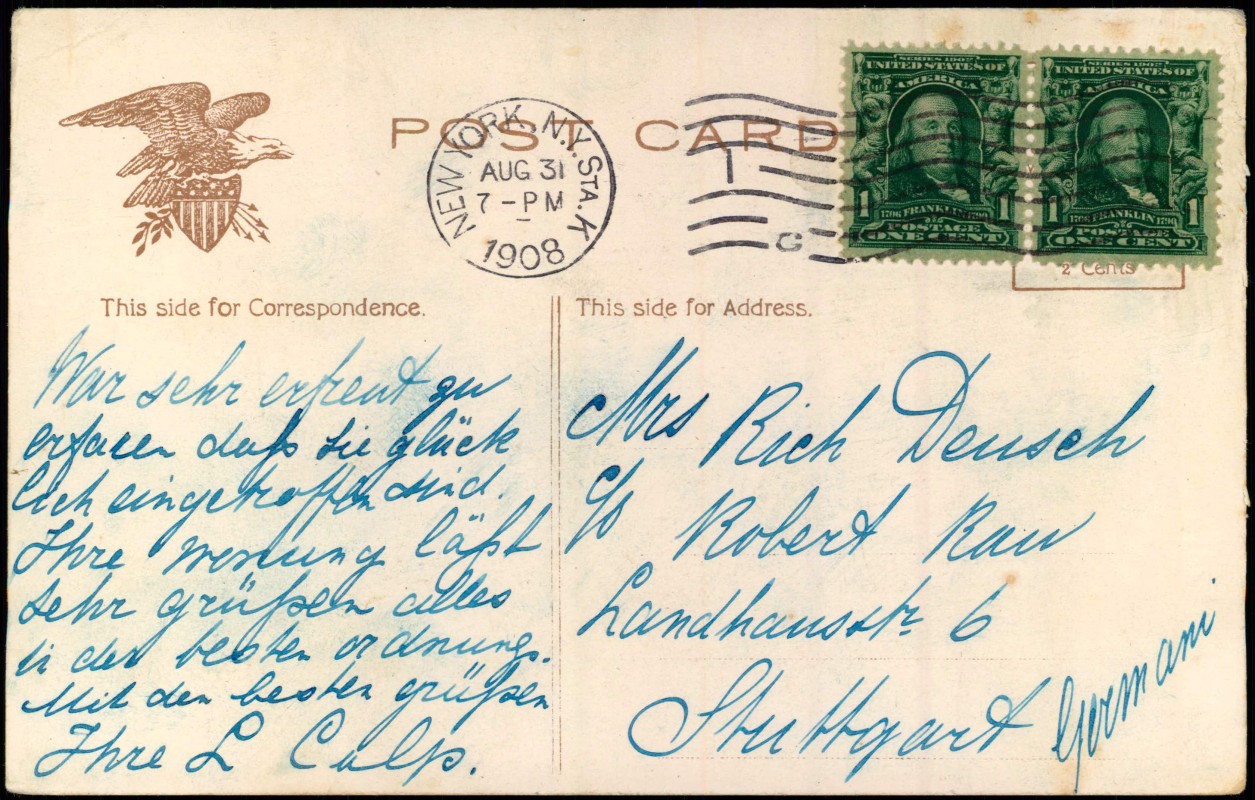 POST CARD
NEW YORK, N.Y. STA. K
AUG 31
7-PM
1908
1
C
SERIES 1902
UNITED STATES OF
AMERICA
1 1706 FRANKLIN 1790 1
POSTAGE
ONE CENT
SERIES 1902
UNITED STATES OF
AMERICA
1 1706 FRANKLIN 1790 1
POSTAGE
ONE CENT
2 Cents
This side for Correspondence.
War sehr erfreut zu
erfaren daß sie glück
lich eingetroffen sind.
Ihre wonung läßt
sehr grüßen alles
in der besten ordnung.
Mit den besten grüßen
Ihre L
This side for Address.
Mrs Rich Deusch
c/o Robert Rau
Landhausstr 6
Stuttgart
Germani